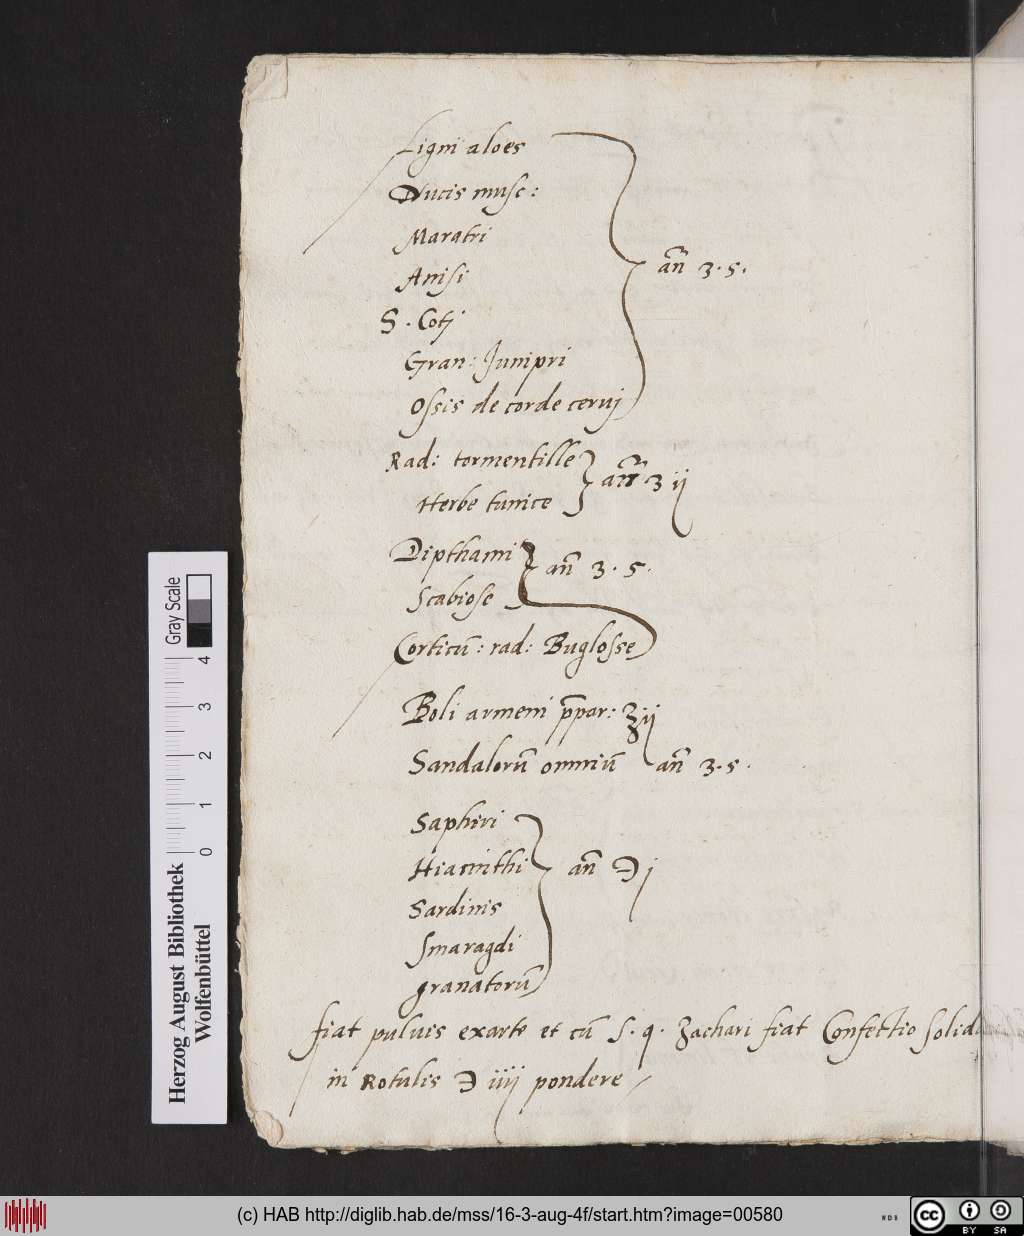 Ligni aloes
Nucis musc:
Maratri
Anisi
S. Cotj
Gran: Junipri
Ossis de corde cervj
añ ʒ. s.
Rad: tormentille
Herbe tunice
añ ʒ ij
Dipthami
Scabiose
añ ʒ. s.
Corticū: rad: Buglosse
Boli armeni p̄par: ʒij
Sandalorū omniū añ ʒ. s.
Saphiri
Hiacinthi
añ ℈ j
Sardinis
Smaragdi
granatorū
fiat puluis exarte et cū S. q. Zachari fiat Confectio solida
in Rotulis ℈ iiij pondere
Gray Scale
4
3
2
1
0
Herzog August Bibliothek
Wolfenbüttel
(c) HAB http://diglib.hab.de/mss/16-3-aug-4f/start.htm?image=00580
WDB
cc
BY SA